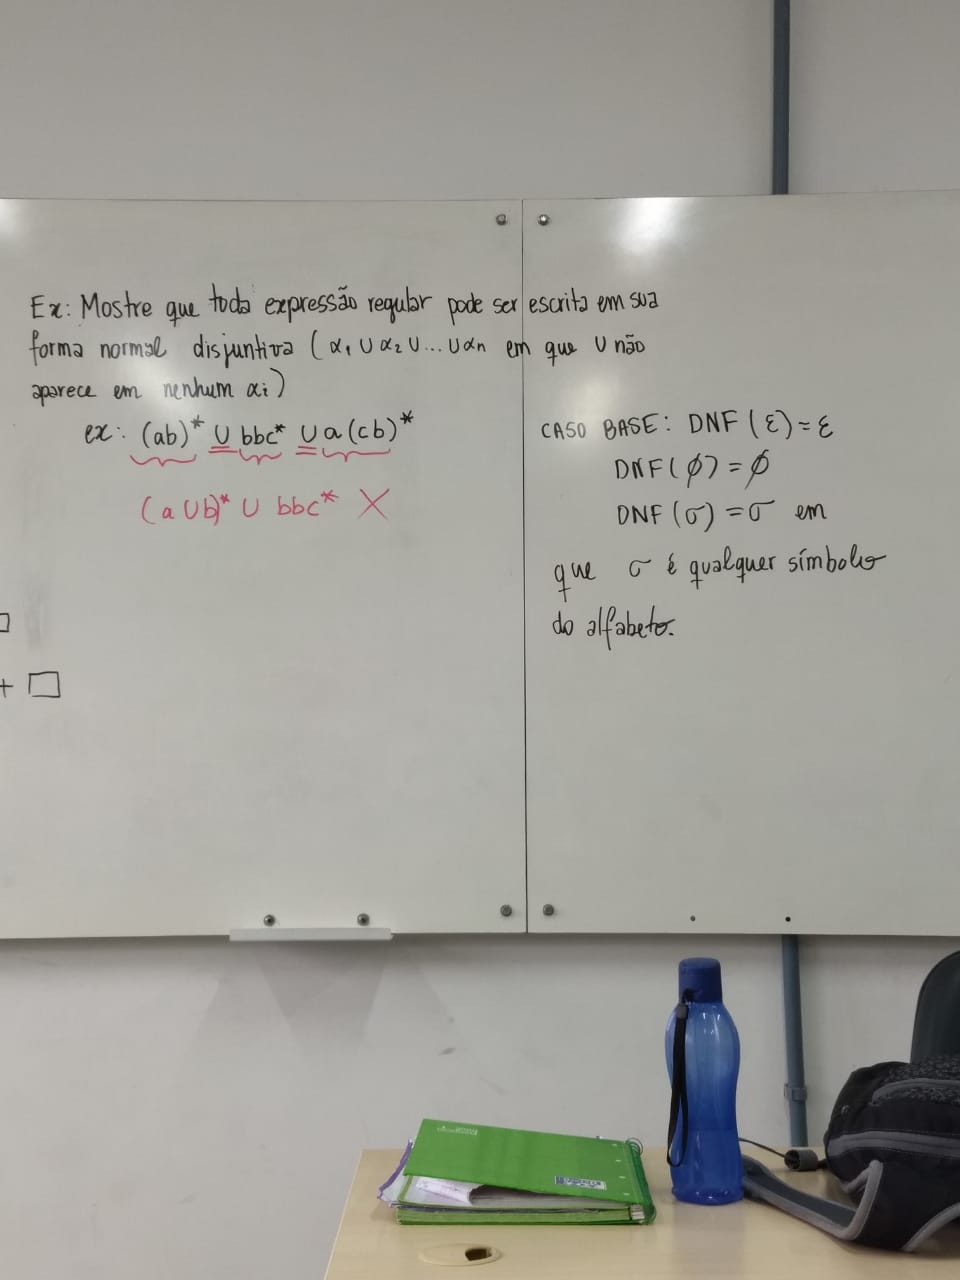 Ex: Mostre que toda expressão regular pode ser escrita em sua
forma normal disjuntiva (α₁ ∪ α₂ ∪ ... ∪ αn em que ∪ não
aparece em nenhum αi)
ex: (ab)* ∪ bbc* ∪ a(cb)*
(a ∪ b)* ∪ bbc* X
+ □
CASO BASE: DNF(ε) = ε
DNF(∅) = ∅
DNF(σ) = σ em
que σ é qualquer símbolo
do alfabeto.